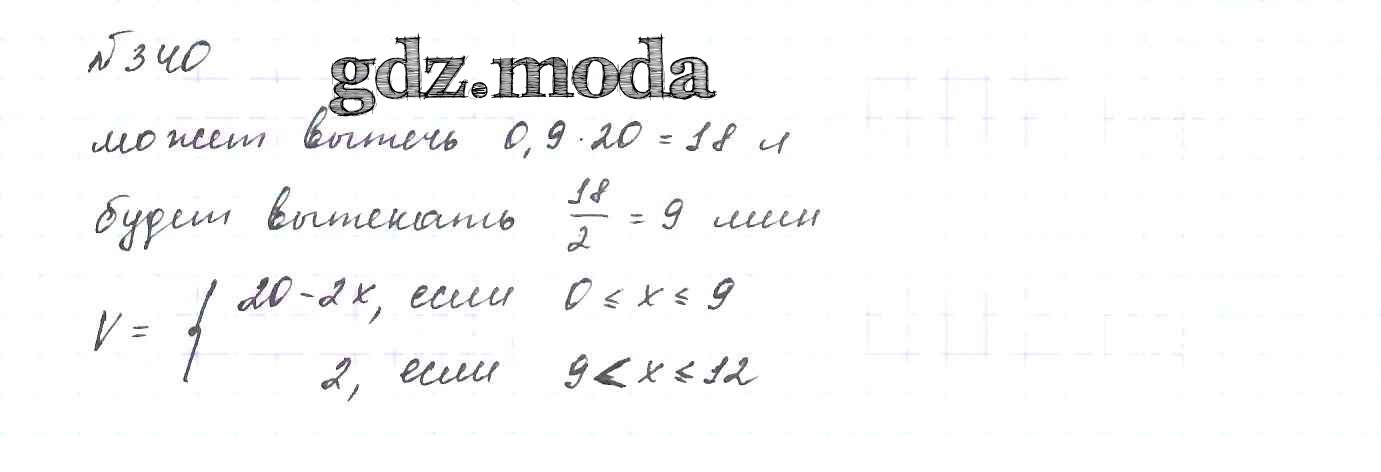 №340
gdz.moda
может вытечь 0,9·20=18 л
будет вытекать 18/2 = 9 мин
V = { 20-2x, если 0 ≤ x ≤ 9
2, если 9 < x ≤ 12